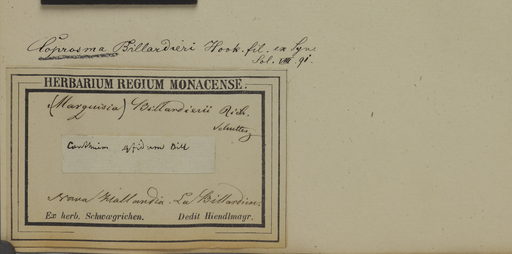 Coprosma Billardieri Hook. fil. ex Syn.
Sol. VIII. 91.
HERBARIUM REGIUM MONACENSE.
(Marquisia) Billardierii Rich.
Schultes
Canthium 4fidum Bill
Nova Hollandia. La Billardiere.
Ex herb. Schwægrichen. Dedit Hiendlmayr.